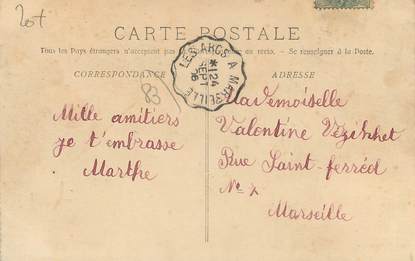 20+
CARTE POSTALE
Tous les Pays étrangers n'acceptent pas au recto. - Se renseigner à la Poste.
CORRESPONDANCE
ADRESSE
LES ARCS A MARSEILLE
24
SEPT
06
83
Mille amitiers
je t'embrasse
Marthe
Mademoiselle
Valentine
Rue Saint-ferréol
No 7
Marseille